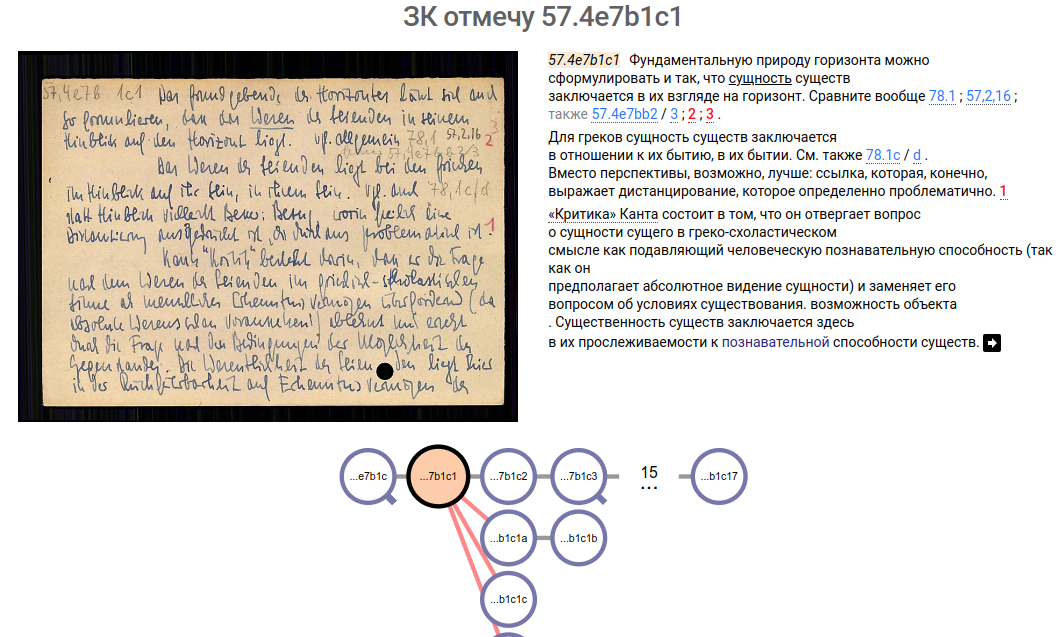 ЗК отмечу 57.4e7b1c1
57,4e7b 1c1 Das grundgebende des Horizontes lässt sich auch
so formulieren, dass das Wesen des Seienden in seinem
Hinblick auf den Horizont liegt. vgl. allgemein 78,1 57,2,16
3
2
Das Wesen des Seienden liegt bei den Griechen
im Hinblick auf ihr Sein, in ihrem Sein. vgl. auch 78,1c/d
statt Hinblick vielleicht besser: Bezug, worin freilich eine
Distanzierung ausgedrückt ist, die durchaus problematisch ist. 1
Kants "Kritik" besteht darin, dass er die Frage
nach dem Wesen des Seienden im griechisch-scholastischen
Sinne als menschliches Erkenntnisvermögen überfordernd (da
absolute Wesensschau voraussetzend) ablehnt und ersetzt
durch die Frage nach den Bedingungen der Möglichkeit des
Gegenstandes. Die Wesentlichkeit des Seienden liegt hier
in der Rückführbarkeit auf Erkenntnisvermögen des
57.4e7b1c1 Фундаментальную природу горизонта можно
сформулировать и так, что сущность существ
заключается в их взгляде на горизонт. Сравните вообще 78.1 ; 57,2,16 ;
также 57.4e7bb2 / 3 ; 2 ; 3 .
Для греков сущность существ заключается
в отношении к их бытию, в их бытии. См. также 78.1c / d .
Вместо перспективы, возможно, лучше: ссылка, которая, конечно,
выражает дистанцирование, которое определенно проблематично. 1
«Критика» Канта состоит в том, что он отвергает вопрос
о сущности сущего в греко-схоластическом
смысле как подавляющий человеческую познавательную способность (так
как он
предполагает абсолютное видение сущности) и заменяет его
вопросом об условиях существования. возможность объекта
. Существенность существ заключается здесь
в их прослеживаемости к познавательной способности существ.
...e7b1c ...7b1c1 ...7b1c2 ...7b1c3 15 ... ...b1c17
...b1c1a ...b1c1b
...b1c1c